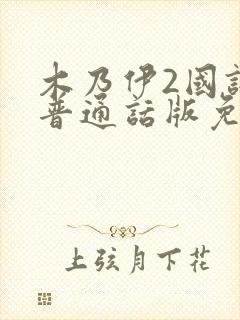 木乃伊2國語
普通話版免
上弦月下花